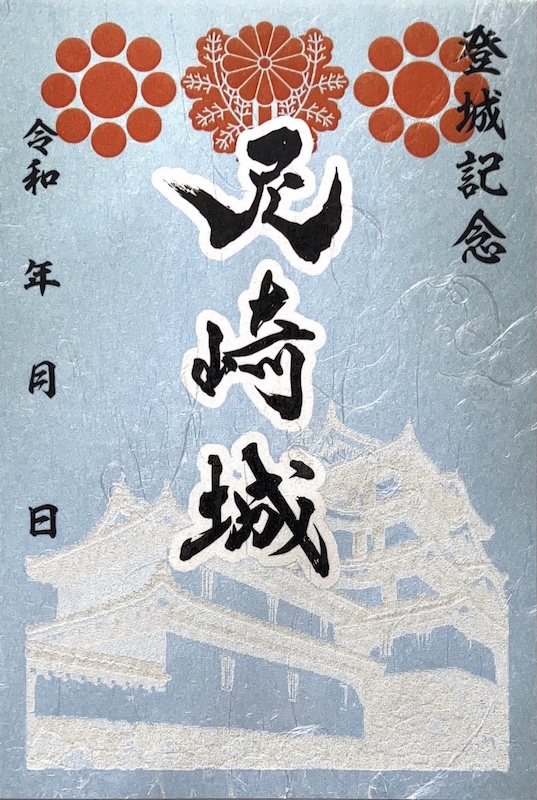 登城記念
尼崎城
令和 年 月 日